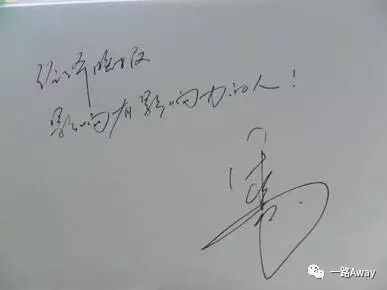 经济晚报
影响有影响力的人！
一路Away